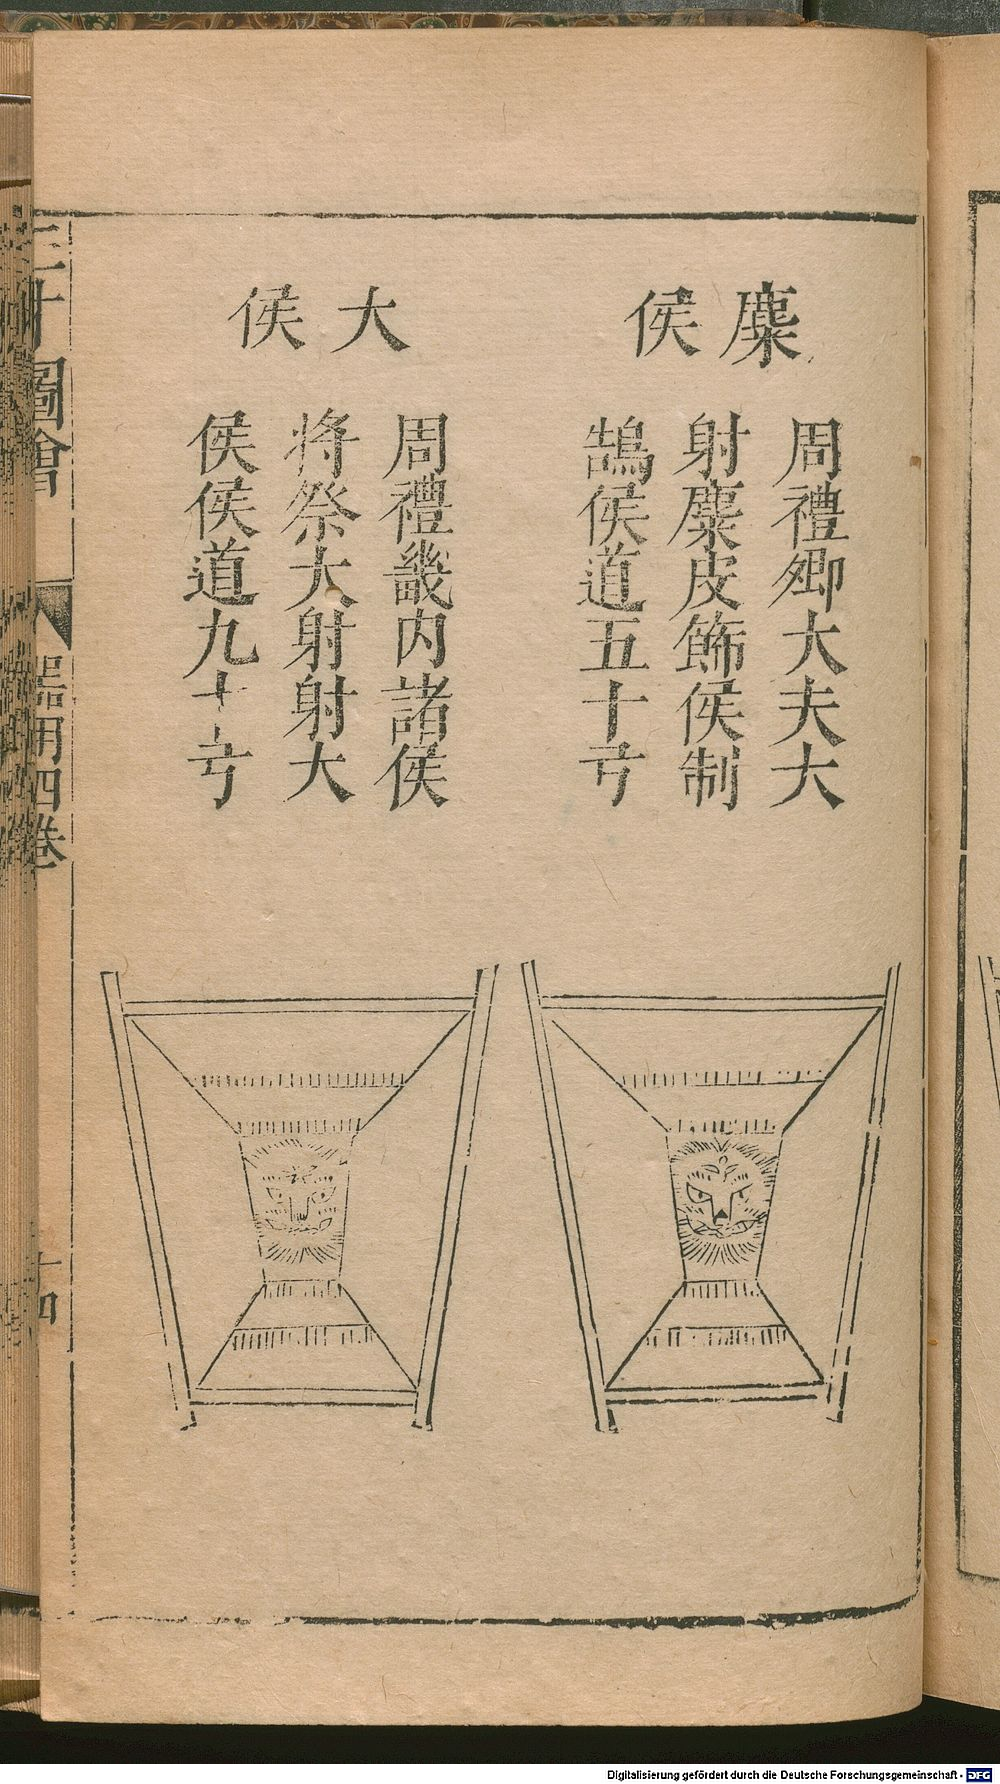 麋侯
周禮卿大夫大
射麋皮飾侯制
鵠侯道五十弓
大侯
周禮畿内諸侯
将祭大射射大
侯侯道九十弓
三才圖會
器用四卷
十四
Digitalisierung gefördert durch die Deutsche Forschungsgemeinschaft - DFG